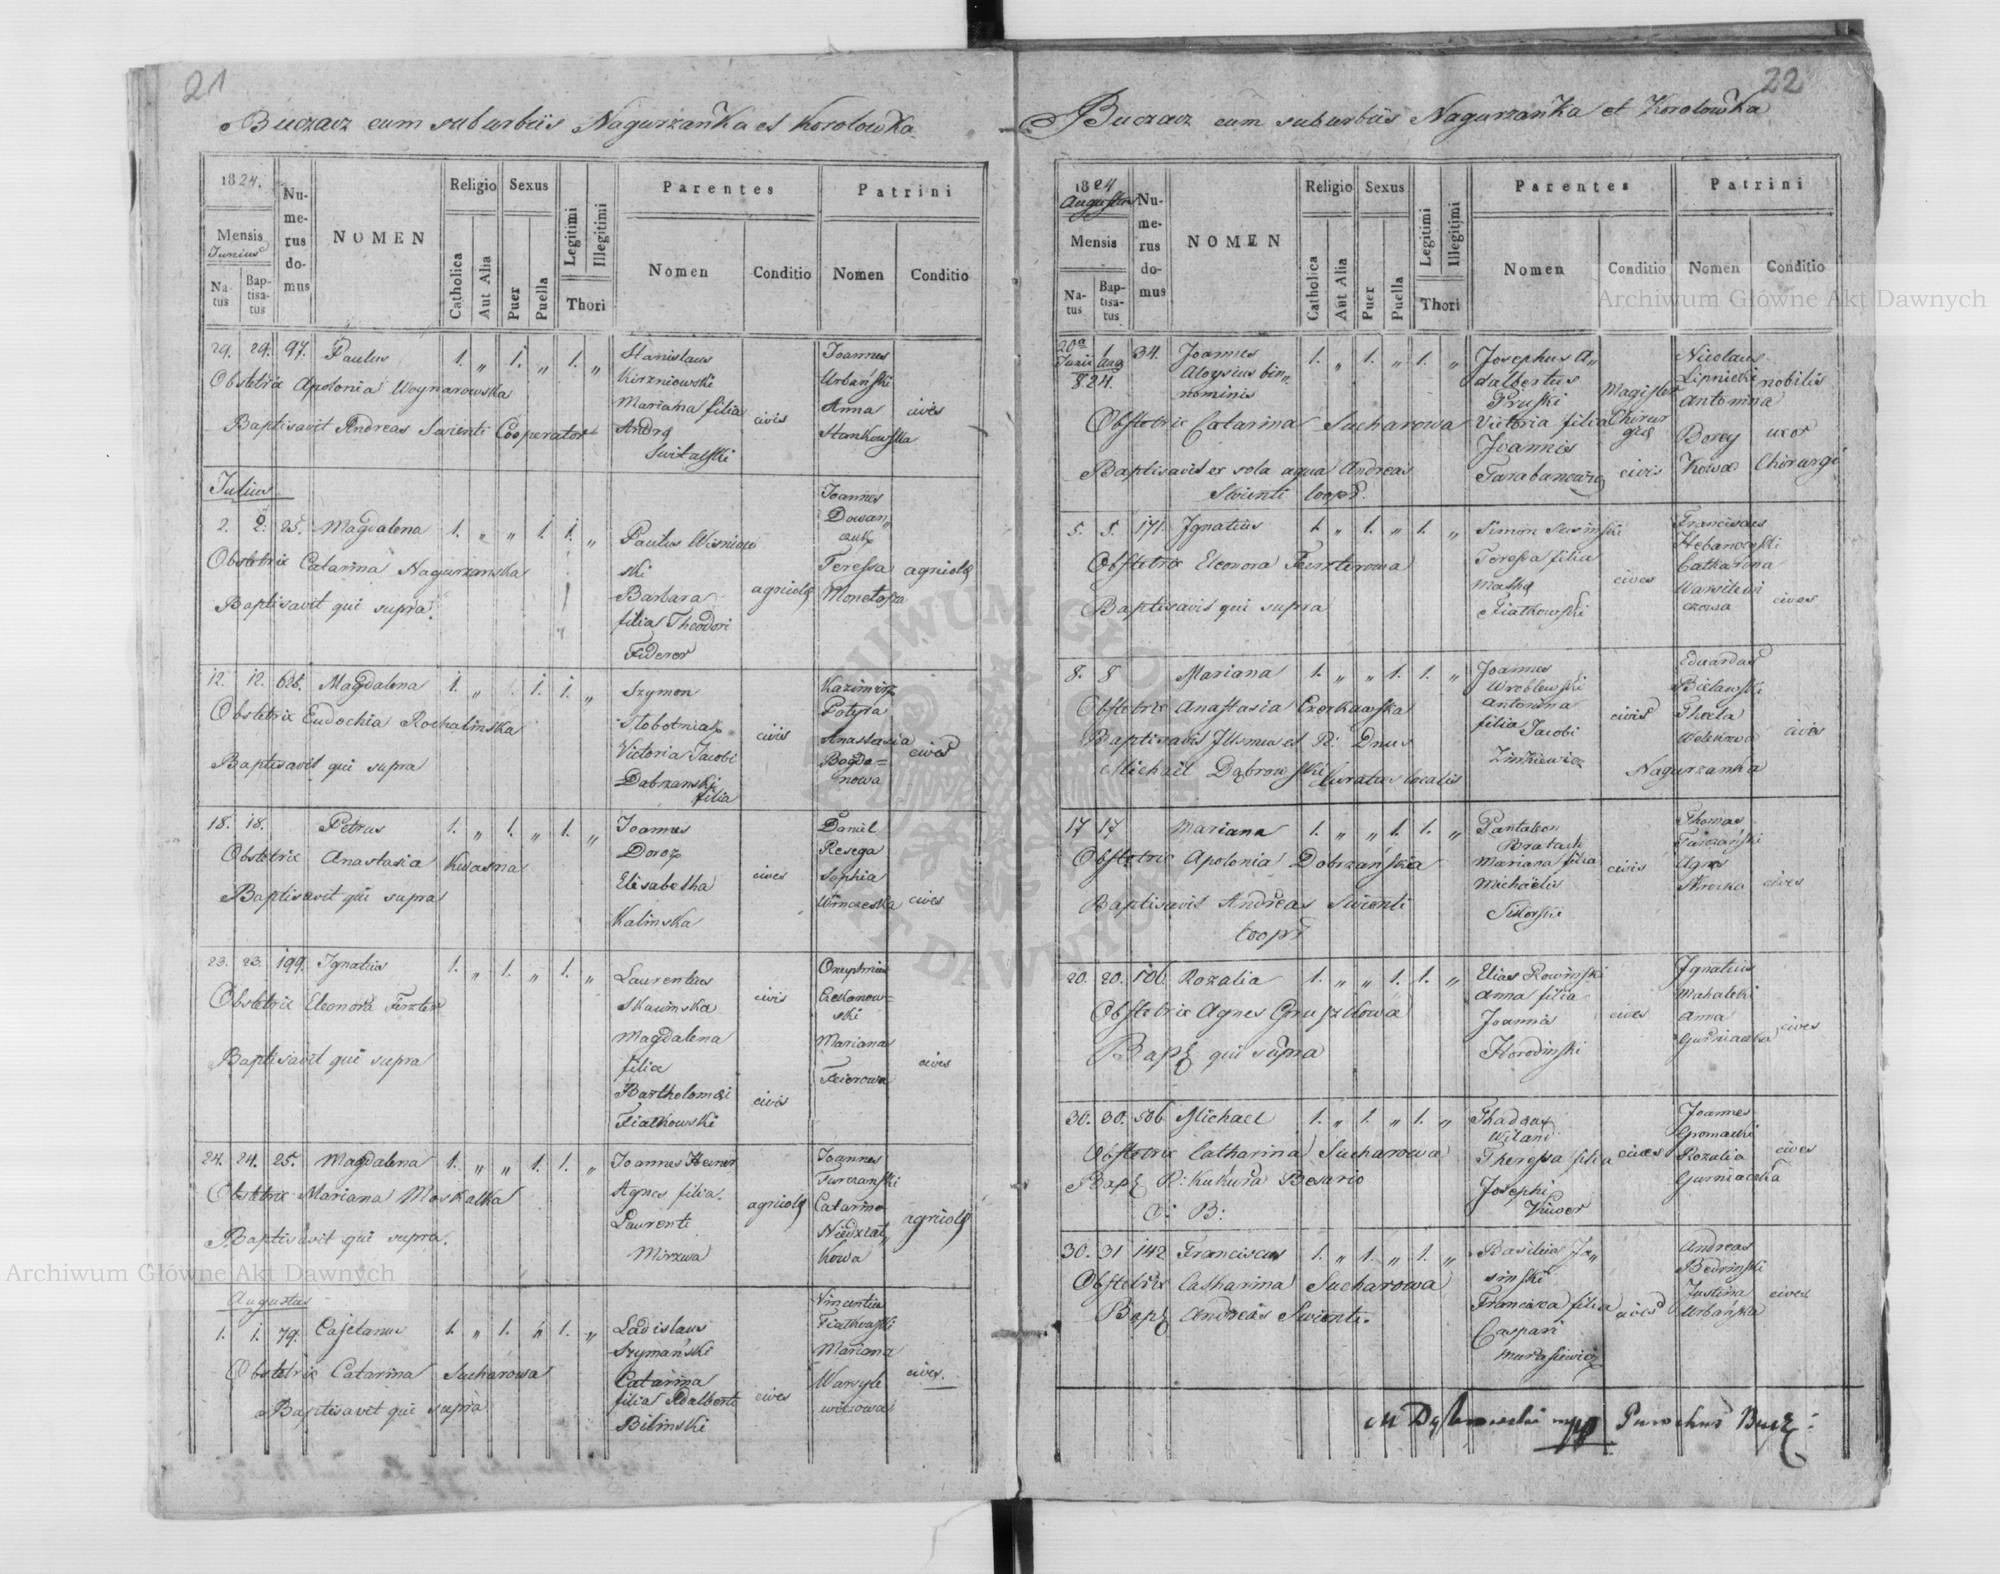 21
Buczacz cum suburbiis Nagurzanka et Korolowka
1824.
Mensis
Junius
Na-
tus
Bap-
tisa-
tus
Nu-
me-
rus
do-
mus
NOMEN
Religio
Catholica
Aut Alia
Sexus
Puer
Puella
Legitimi
Illegitimi
Thori
Parentes
Nomen
Conditio
Patrini
Nomen
Conditio
29. 29. 97. Paulus 1. „ 1. „ 1. „
Obstetrix Apolonia Woynarowska
Baptisavit Andreas Swienti Cooperator
Stanislaus
Kirzniowski
Mariana filia
civis
Switalski
Joannes
Urbański
Anna
cives
Stankowska
Julius
2. 2. 25. Magdalena 1. „ „ 1. 1. „
Obstetrix Catarina Nagurzanska
Baptisavit qui supra
Paulus Wisniow
ski
Barbara
filia Theodori
Fiderer
agricolę
Joannes
Teressa
agricolę
12. 12. Magdalena 1. „ 1. 1. „
Obstetrix Eudochia Rochalinska
Baptisavit qui supra
Szymon
Victoria Jacobi
Dabrzanski
filia
civis
Kazimirz
Potyra
Anastasia
Bogda=
nowa
cives
18. 18. Petrus 1. „ 1. „ 1. „
Obstetrix Anastasia Kwasna
Baptisavit qui supra
Joannes
Elisabetha
Kalinska
cives
Daniel
Resega
Sophia
Winczeska
cives
23. 23. 199. Ignatius 1. „ 1. „ 1. „
Obstetrix Eleonora Ferzter
Baptisavit qui supra
Laurentius
Skawinska
civis
Magdalena
filia
Bartholomæi
Fiatkowski
civis
Onuphrius
ski
Mariana
cives
24. 24. 25. Magdalena 1. „ „ 1. 1. „
Obstetrix Mariana Moskalka
Baptisavit qui supra.
Joannes Heiner
Agnes filia
Laurenti
Mirzwa
agricolę
Joannes
Turczanski
Catarina
Niedzial„
kowa
agricolę
Augustus
1. 1. 79. Cajetanus 1. „ 1. „ 1. „
Obstetrix Catarina Sucharowa
Baptisavit qui supra
Ladislaus
Szymański
Catarina
filia Adalberti
Bilinski
cives
Vincentius
Mariana
Warsyle
wiczowa
cives.
22
Buczacz cum suburbiis Nagurzanka et Korolowka
1824
Augustus
Mensis
Na-
tus
Bap-
tisa-
tus
Nu-
me-
rus
do-
mus
NOMEN
Religio
Catholica
Aut Alia
Sexus
Puer
Puella
Legitimi
Illegitimi
Thori
Parentes
Nomen
Conditio
Patrini
Nomen
Conditio
20a
Junii 1 Aug
824.
34. Joannes
Aloysius bin„
nominis
1. „ 1. „ 1. „
Obstetrix Catarina Sucharowa
Baptisavit ex sola aqua Andreas
Swienti Coopr.
Josephus A„
dalbertus
Pruski
Victoria filia
Joannis
Magister
Chirur
gię
civis
Nicolaus
Lipnicki
Antonina
nobilis
uxor
Chirurgi
5. 5. 171 Ignatius 1. „ 1. „ 1. „
Obstetrix Eleonora Ferzterowa
Baptisavit qui supra
Simon
Teressa filia
Fiatkowski
cives
Franciscus
Catharina
Warsilewi
czowa
cives
8. 8 Mariana 1. „ „ 1. 1. „
Obstetrix Anastasia Czorkawska
Baptisavit Illsmus et R: Dnus
Michael Dąbrowski Curatus localis
Joannes
Wroblewski
Antonina
filia Jacobi
Zinkiewicz
civis
Eduardus
Bielawski
Thecla
cives
Nagurzanka
17 17 Mariana 1. „ „ 1. 1. „
Obstetrix Apolonia Dobrzańska
Baptisavit Andreas Swienti
Coopr
Pantaleon
Mariana filia
Michaelis
Sikorski
civis
Thomas
Agnes
cives
20. 20. 506 Rozalia 1. „ „ 1. 1. „
Obstetrix Agnes Gruszkowa
Bapt qui supra
Elias Rowinski
Anna filia
Joannis
Horodinski
cives
Ignatius
Mahaleki
Anna
Gurniacka
cives
30. 30. 506 Michael 1. „ 1. „ 1. „
Obstetrix Catharina Sucharowa
Bapt R: Kukura Besario
O: B:
Thadæus
Witani
Theressa filia
Josephi
cives
Joannes
Rozalia
Gurniacka
cives
30. 31 142 Franciscus 1. „ 1. „ 1. „
Obstetrix Catharina Sucharowa
Bapt Andreas Swienti.
Basilius Ja„
sinski
Francisca filia
Caspari
Murasiewicz
cives
Andreas
Bedrinski
Justina
Urbańska
cives
M Dąbrowski mpp Parochus Bucz:
Archiwum Główne Akt Dawnych
Archiwum Główne Akt Dawnych